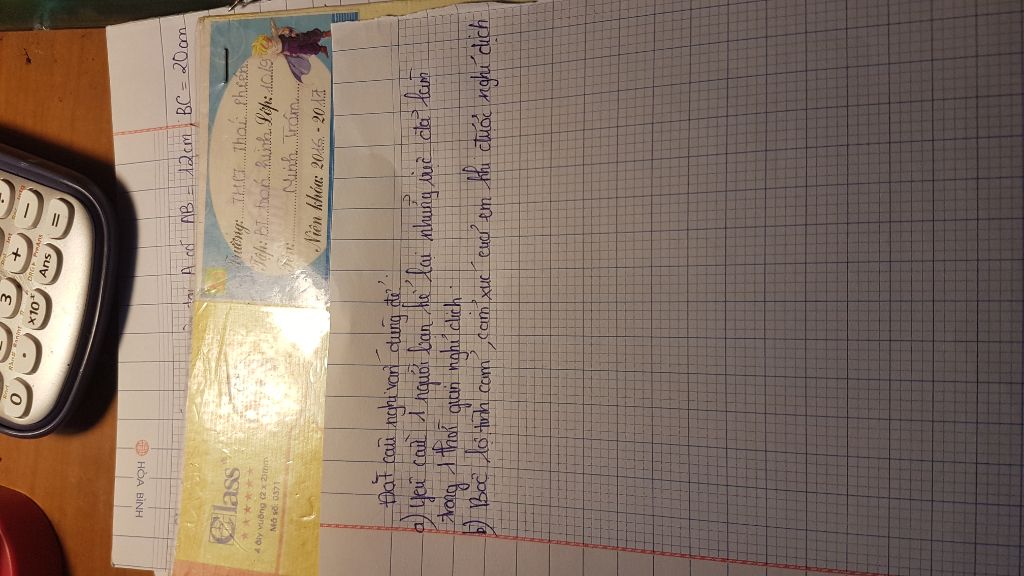 A có AB = 12cm BC = 20cm
HÒA BÌNH
Class
4 ôly vuông (2 x 2)mm
Mã số: 0371
Trường: THPT Thái Phiên
Lớp: 10A9
Minh Trâm
Niên khóa: 2016 - 2017
Đặt câu nghi vấn dùng để:
a) Yêu cầu 1 người bạn kể lại những việc đã làm
trong 1 thời gian nghỉ dịch.
b) Bộc lộ tình cảm, cảm xúc của em khi được nghỉ dịch
0
.
x10ˣ
Ans
=
3
+
-